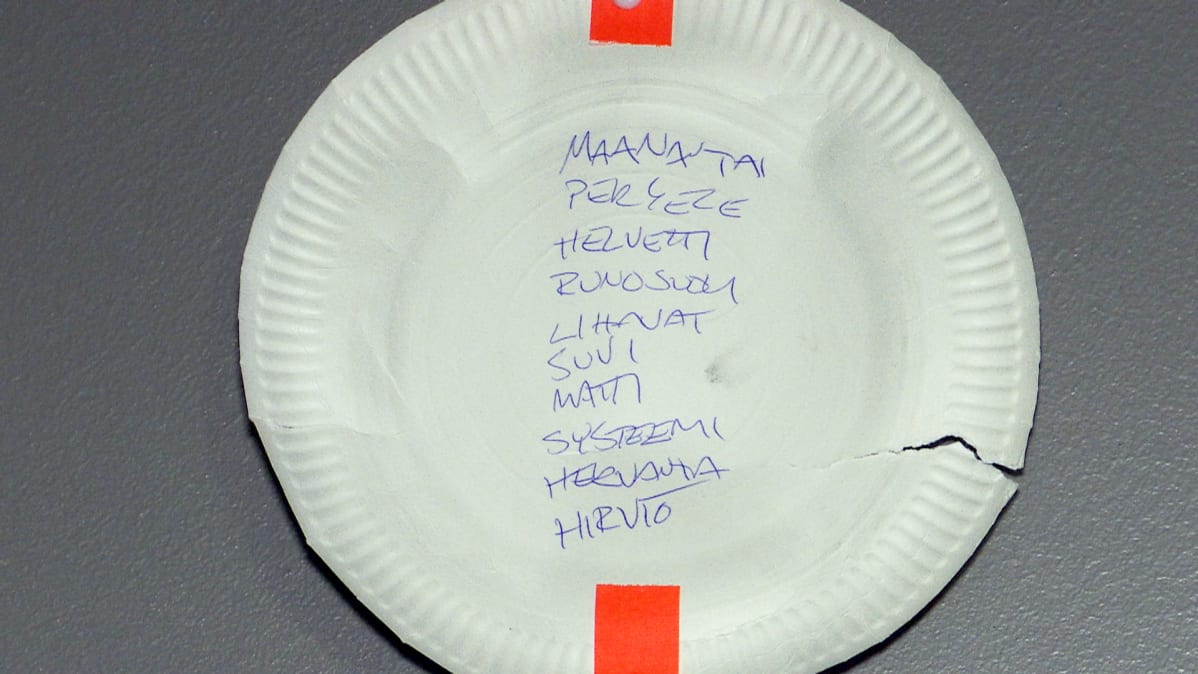 MAANANTAI
PERKELE
HELVETTI
RUNOSUONI
LIHAVAT
SUVI
MATTI
SYSTEEMI
HERVANTA
HIRVIÖ